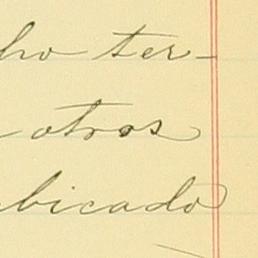 ho ter-
otros
bicado